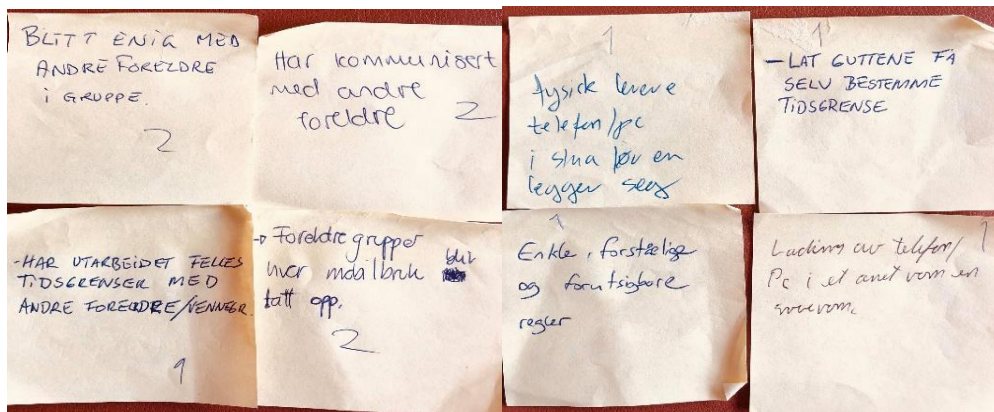 BLITT ENIG MED
ANDRE FORELDRE
i GRUPPE.
2
Har kommunisert
med andre
foreldre
2
1
fysisk levere
telefon/pc
i stua før en
legger seg
1
- LAT GUTTENE FÅ
SELV BESTEMME
TIDSGRENSE
- HAR UTARBEIDET FELLES
TIDSGRENSER MED
ANDRE FORELDRE/VENNEGR.
1
→ Foreldregrupper
hvor mobilbruk blir
tatt opp.
2
1
Enkle, forståelige
og forutsigbare
regler
1
Lading av telefon/
Pc i et anet rom en
soverom.